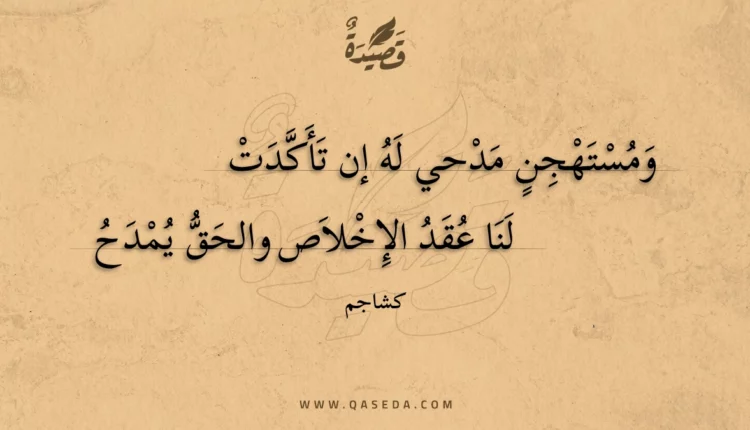 قَصِيْدَةٌ
وَمُسْتَهْجِنٍ مَدْحي لَهُ إن تَأَكَّدَتْ
لَنَا عُقَدُ الإِخْلاَصِ والحَقُّ يُمْدَحُ
كشاجم
WWW.QASEDA.COM